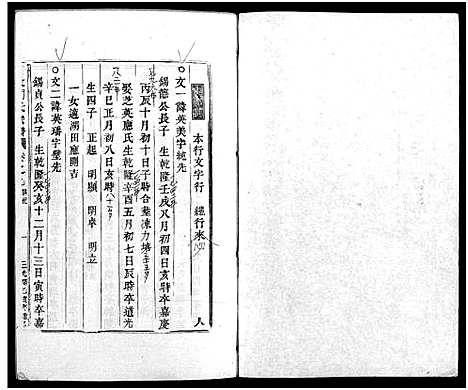 本行文字行 繼行來
人
○文一諱英美字純先
錫德公長子 生乾隆壬戌八月初四日亥時卒嘉慶
丙辰十月初十日子時合葬凍力塘
娶芝英應氏生乾隆辛酉五月初七日辰時卒道光
辛巳正月初八日亥時
生四子 正起 明顯 明卓 明立
一女適湖田應開吉
○文二諱英璠字璧先
錫貞公長子 生乾隆癸亥十二月十三日寅時卒嘉